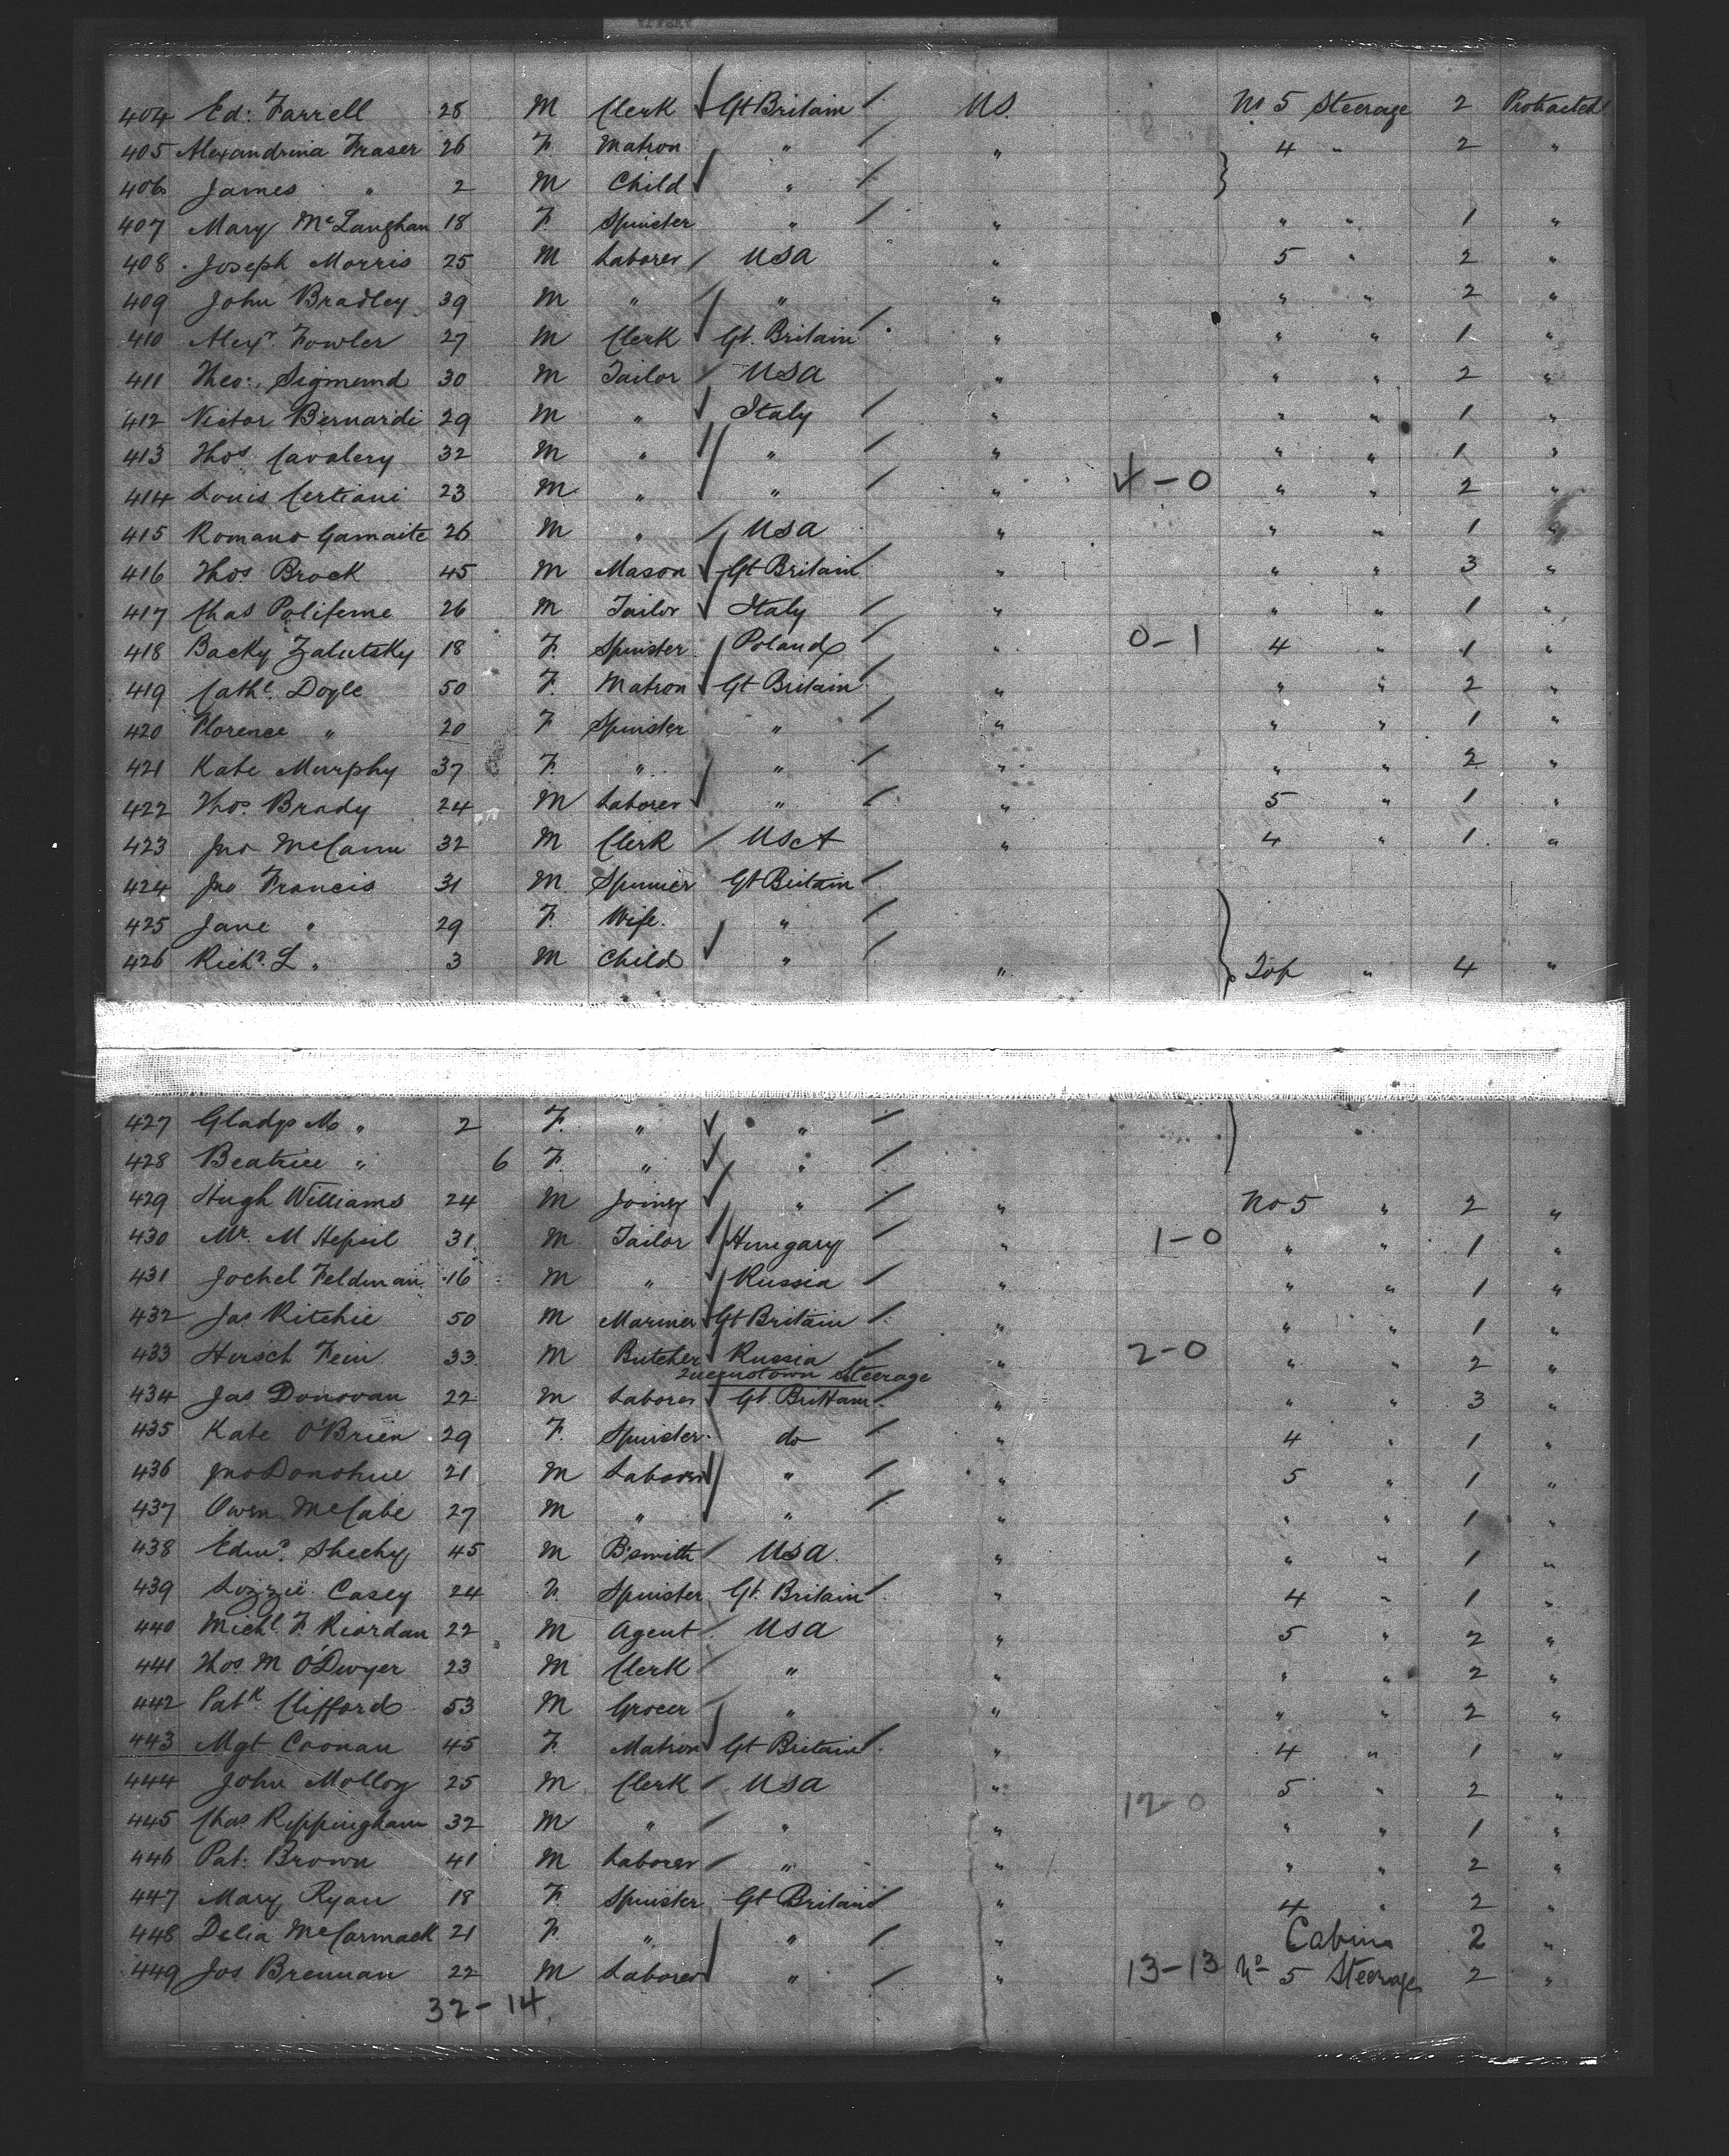 404 Ed: Farrell 28 M Clerk Gt Britain U.S. No 5 Steerage 2 Protracted
405 Alexandrina Fraser 26 F. Matron " " 4 " 2 "
406 James " 2 M Child "
407 Mary McLanghan 18 F. Spinster " " " " 1 "
408 Joseph Morris 25 M Laborer USA " 5 " 2 "
409 John Bradley 39 M " " " " " 2 "
410 Alexr. Fowler 27 M Clerk Gt. Britain " " " 1 "
411 Theo: Sigmund 30 M Tailor USA " " " 2 "
412 Victor Bernardi 29 M " Italy " " " 1 "
413 Thos Cavalery 32 M " " " " " 1 "
414 Louis Certiani 23 M " " " 4-0 " " 2 "
415 Romano Gamaite 26 M " USA " " " 1 "
416 Thos Brock 45 M Mason Gt Britain " " " 3 "
417 Chas Poliferne 26 M Tailor Italy " " " 1 "
418 Backy Zalutsky 18 F. Spinster Poland " 0-1 4 " 1 "
419 Cathe. Doyle 50 F. Matron Gt Britain " " " 2 "
420 Florence " 20 F Spinster " " " " 1 "
421 Kate Murphy 37 F. " " " " " 2 "
422 Thos. Brady 24 M Laborer " " 5 " 1 "
423 Jno McCann 32 M Clerk USA " 4 " 1 "
424 Jno Francis 31 M Spinner Gt Britain
425 Jane " 29 F. Wife. "
426 Richd. L " 3 M Child " " Top " 4 "
427 Gladys M " 2 F. " "
428 Beatrice " 6 F. " "
429 Hugh Williams 24 M Joiner " " No 5 " 2 "
430 Mr. M Hepsel 31 M Tailor Hungary " 1-0 " " 1 "
431 Jochel Feldman 16 M " Russia " " " 1 "
432 Jas Ritchie 50 M Mariner Gt Britain " " " 1 "
433 Hirsch Fein 33 M Butcher Russia " 2-0 " " 2 "
Queenstown Steerage
434 Jas Donovan 22 M Laborer Gt. Brittain " " " 3 "
435 Kate O'Brien 29 F. Spinster do " 4 " 1 "
436 Jno Donohue 21 M Laborer " " 5 " 1 "
437 Owen McCabe 27 M " " " " " 1 "
438 Edmd. Sheehy 45 M B'smith USA " " " 1 "
439 Lizzie Casey 24 F. Spinster Gt. Britain " 4 " 1 "
440 Michl. F. Riordan 22 M Agent USA " 5 " 2 "
441 Thos M O'Dwyer 23 M Clerk " " " " 2 "
442 Patk Clifford 53 M Grocer " " " " 2 "
443 Mgt Coonan 45 F. Matron Gt Britain " 4 " 1 "
444 John Molloy 25 M Clerk USA " 5 " 2 "
445 Chas Rippingham 32 M " " " 12-0 " " 1 "
446 Pat: Brown 41 M Laborer " " " " 2 "
447 Mary Ryan 18 F. Spinster Gt Britain " 4 " 2 "
448 Delia McCormack 21 F. " " " Cabin 2 "
449 Jos Brennan 22 M Laborer " " 13-13 No 5 Steerage 2 "
32-14